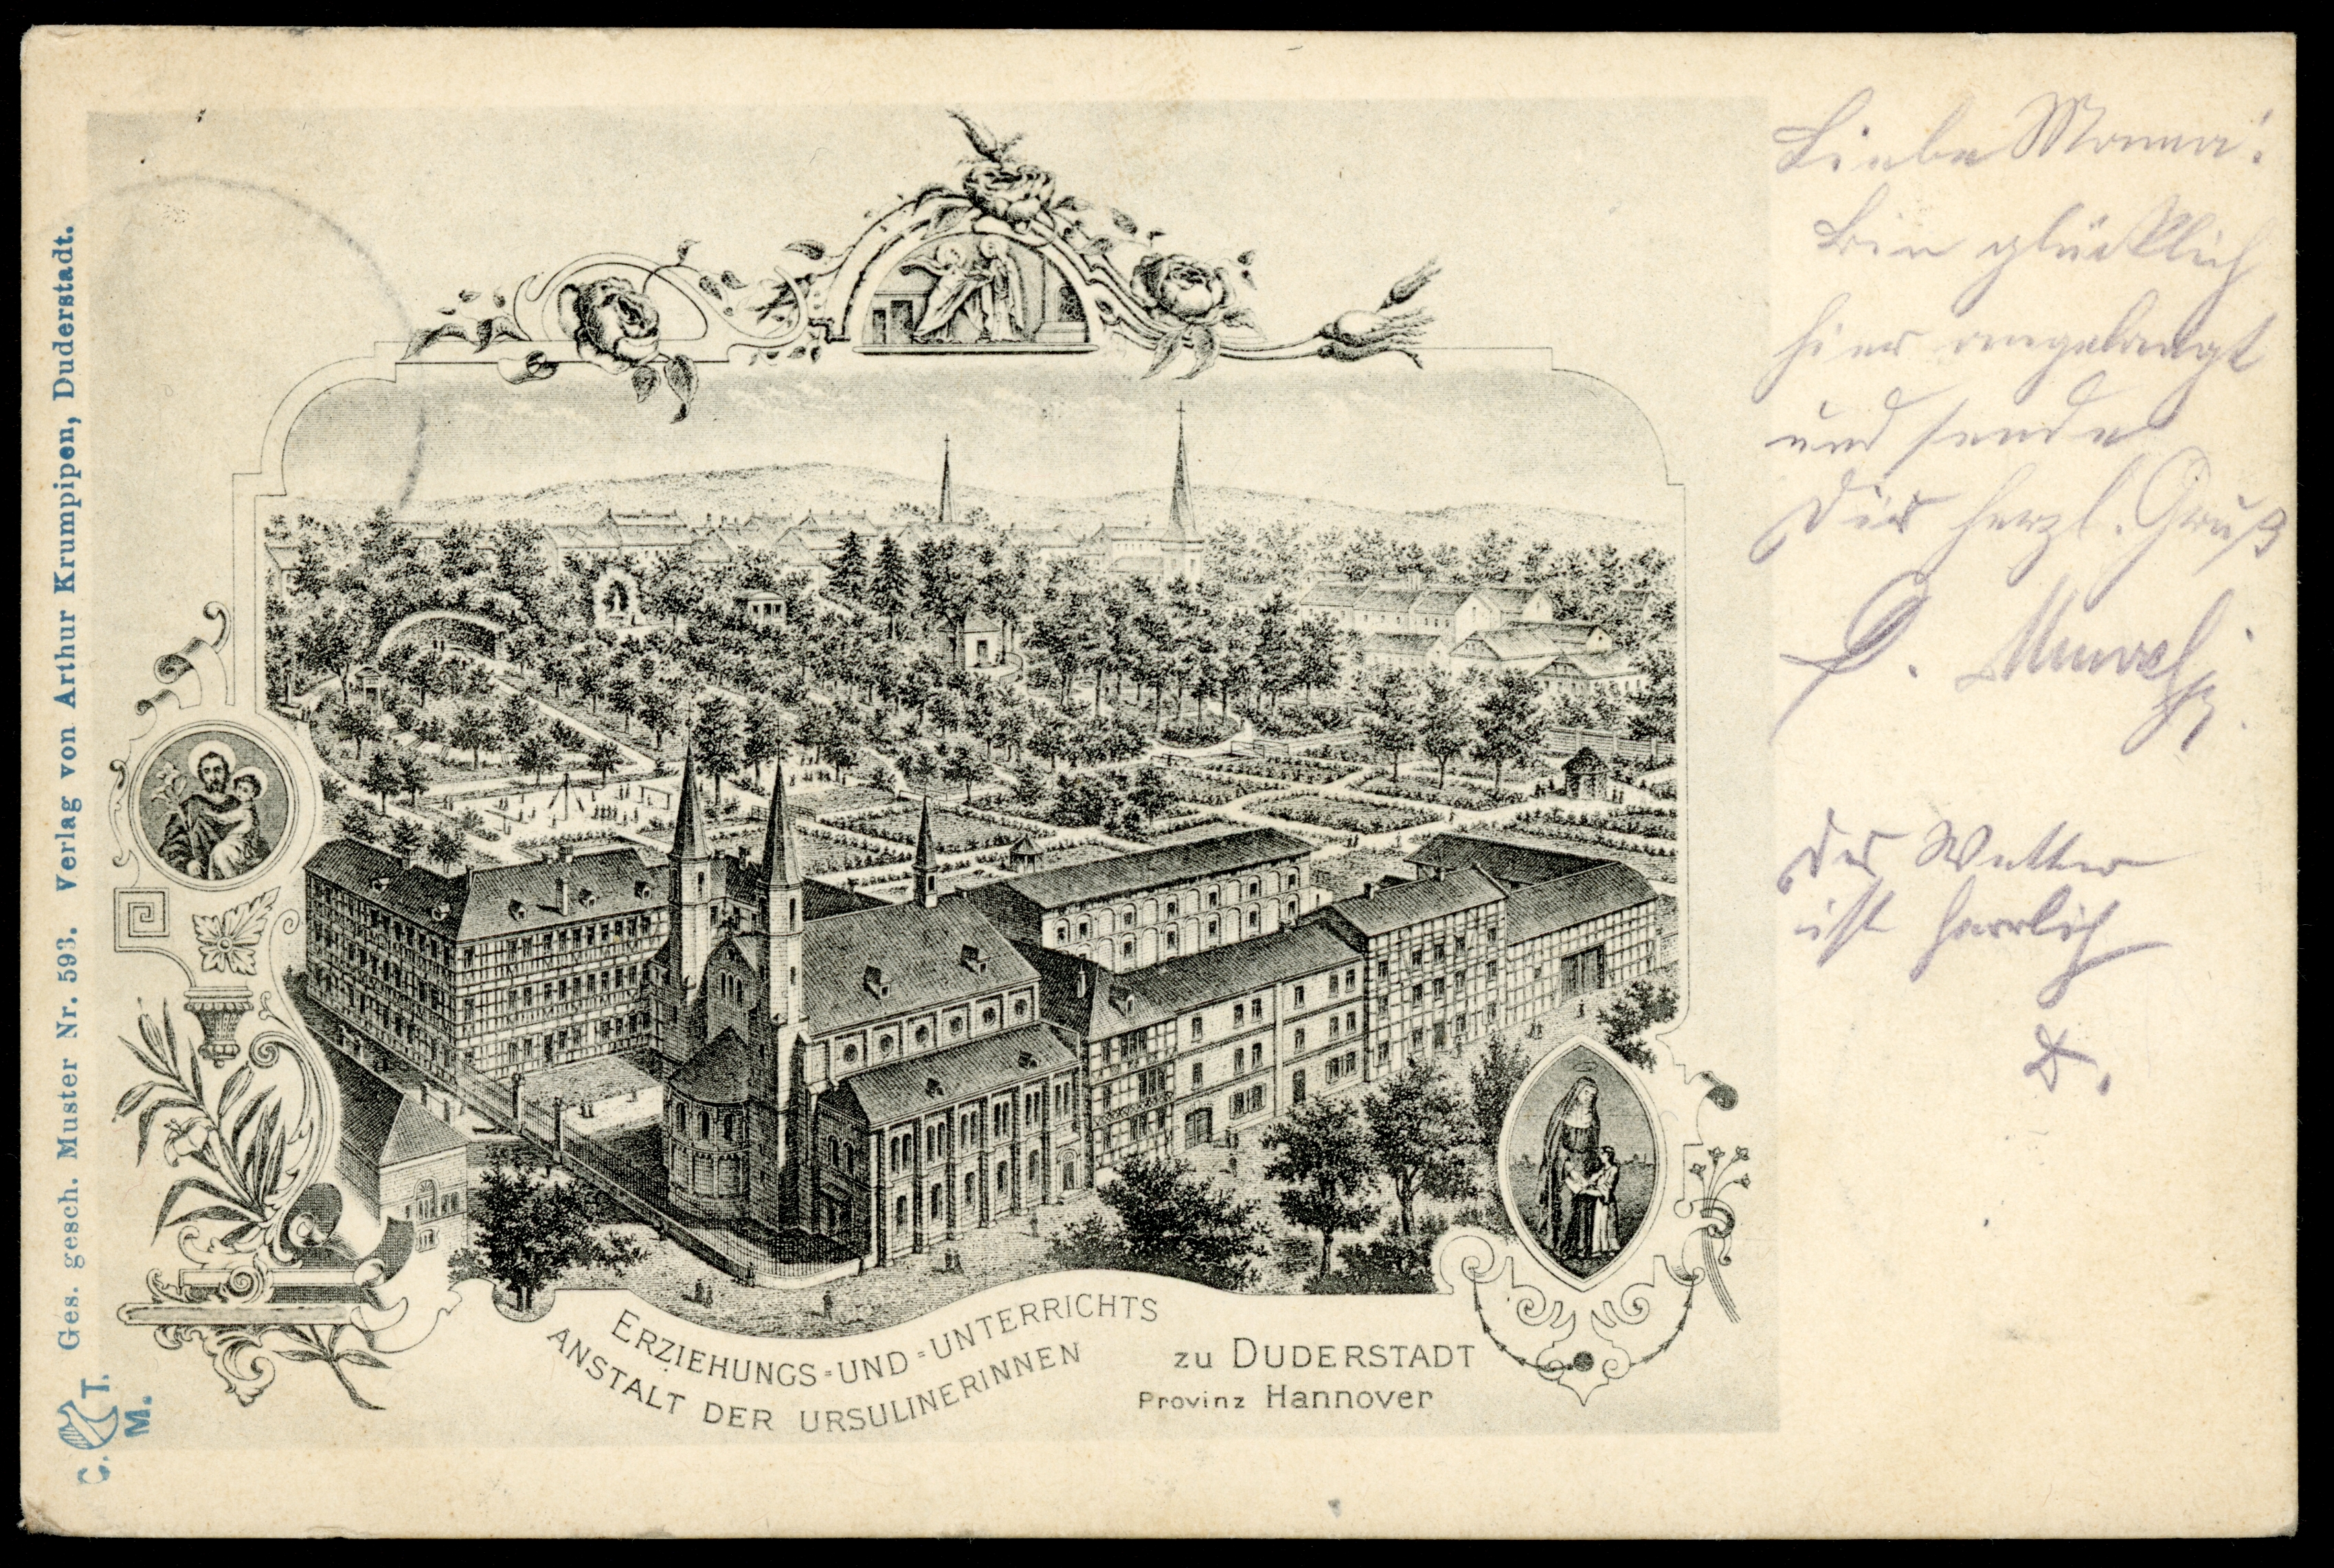 Liebe Mama!
Bin glücklich
hier angelangt
und sende
Dir herzl. Gruß
Das Wetter
ist herrlich
D.
ERZIEHUNGS=UND=UNTERRICHTS
ANSTALT DER URSULINERINNEN
ZU DUDERSTADT
Provinz Hannover
Ges. gesch. Muster Nr. 593. Verlag von Arthur Krumpipen, Duderstadt.
C. T.
M.